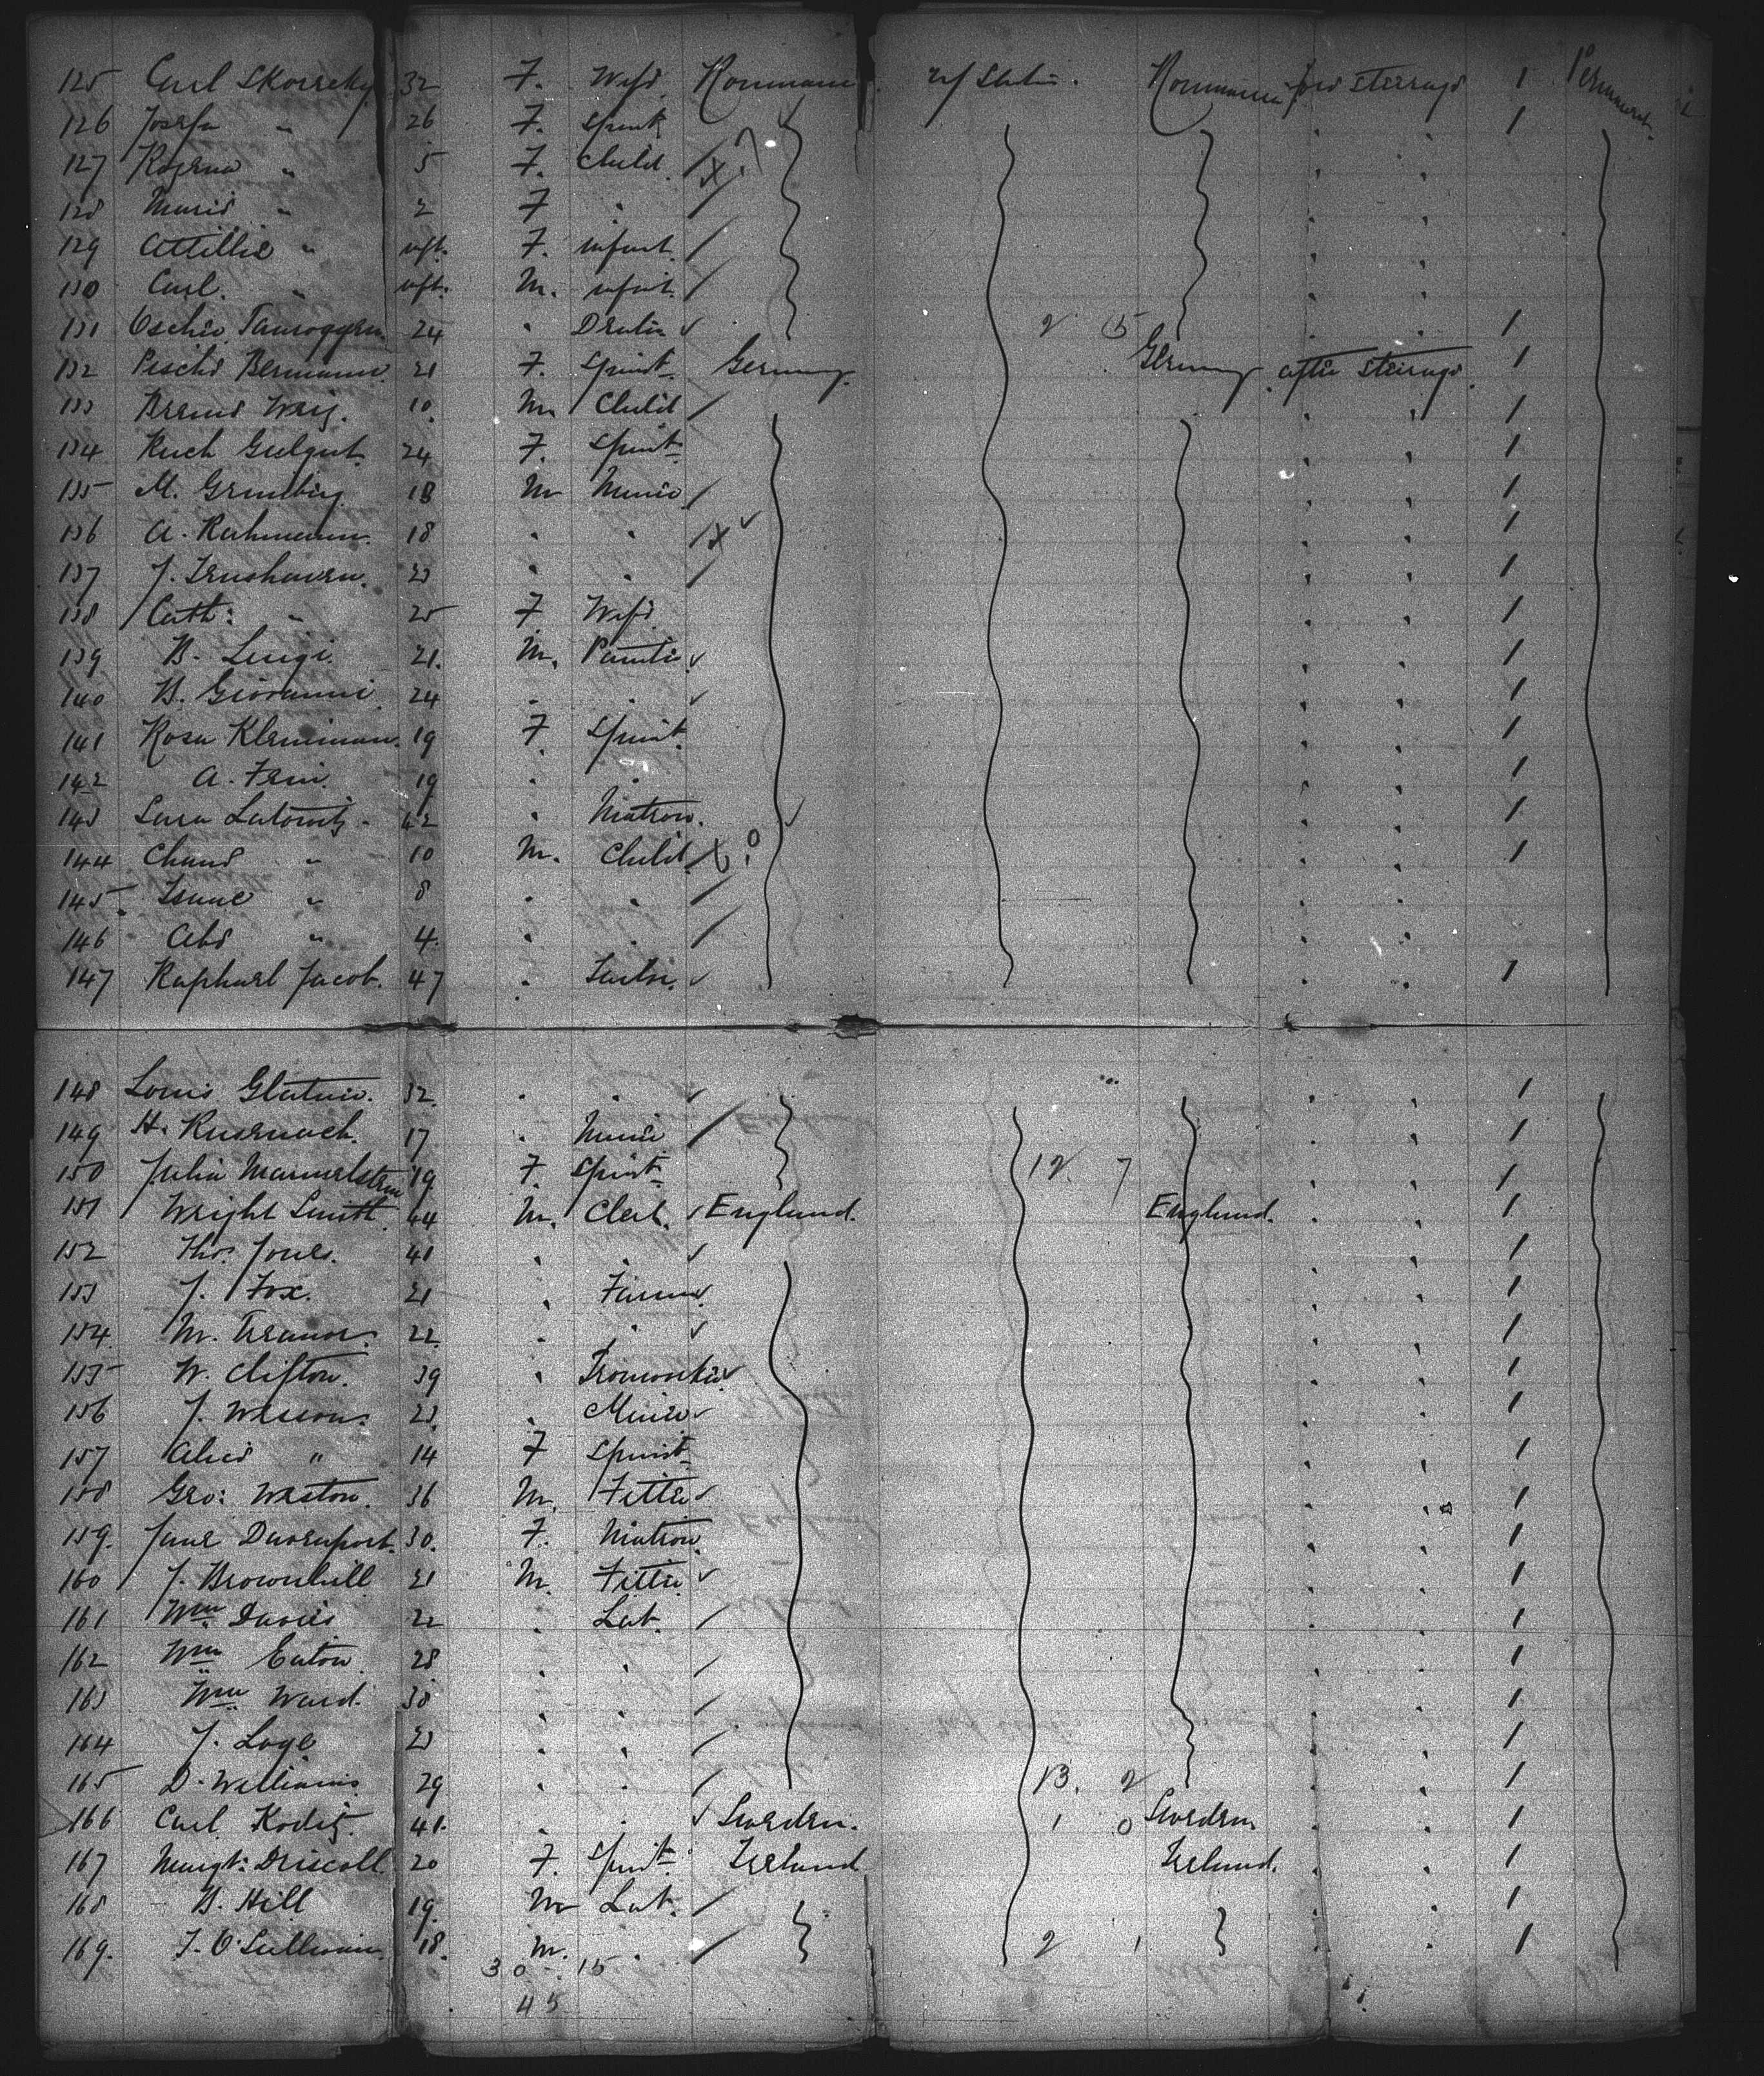 125 Carl Skorreky 32 F. Wife Roumania U/ States. Roumania fore steerage 1 Permanent.
126 Josefa " 26 F. Spinst 1
127 " 5 F. Child.
128 Marie " 2 F "
129 Attillie " inft. F. infant.
130 Carl. " inft. M. infant.
131 24 " 2 15 1
132 Peschs Bermann. 21 F. Spinst. Germany. Germany after steerage. 1
133 10. M Child 1
134 24 F. Spinst. 1
135 M. Grunberg. 18 M Minor 1
136 A. Rahmann. 18 " " 1
137 23 " " 1
138 Cath: " 25 F Wife. 1
139 B. Luigi. 21. M. 1
140 B. Giovanni. 24 " " 1
141 Rosa Kleiniman. 19 F. Spinst. 1
142 A. Fein. 19 " " 1
143 Sara Latowitz. 42 " Matron. 1
144 " 10 M. Child 1
145 Isaac " 8 " "
146 Abe " 4. " "
147 Raphael Jacob. 47 " Tailor. 1
148 Louis 32. " " 1
149 H. 17 " Minor 1
150 Julia Marmelstein 19 F. Spinst. 12 7 1
151 Wright Smith. 44 M. Clerk. England. England. 1
152 Thos. Jones. 41 " " 1
153 J. Fox. 21 " Farmer. 1
154 M. Treanor. 22. " " 1
155 W. Clifton. 39 " Ironworker 1
156 J. 23. " Miner 1
157 Alice " 14 F Spinst. 1
158 Geo: Weston. 36 M. Fitter 1
159. Jane Davenport. 30. F. Matron. 1
160 J. Brownhill 21 M. Fitter. 1
161 Wm. Davies 22 " Lab. 1
162 Wm Eaton. 28 " " 1
163 Wm Ward. 38 " " 1
164 J. 23 " " 1
165 D. Williams 29 " " 13. 2 1
166 Carl Koditz. 41. " " Sweden. 1 0 Sweden 1
167 Margt: Driscoll 20 F. Spinst. Ireland Ireland. 1
168 B. Hill 19. M Lab. 1
169. J. O'Sullivan 18. M. " 2 1 1
30 - 15
45